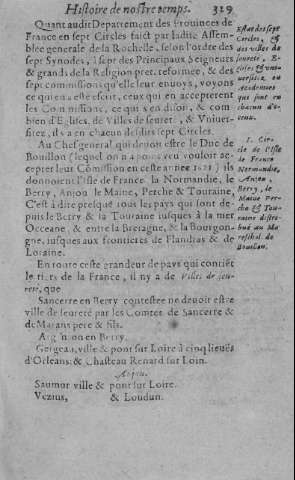 Histoire de nostre temps. 329
Quant audit Departement des Provinces de
France en sept Circles faict par ladite Assem-
blee generale de la Rochelle, selon l'ordre des
sept Synodes, & sept des Principaux Seigneurs
& grands de la Religion pret. reformée, & des
sept commissions qu'elle leur envoya, voyons
ce qui en a esté escrit, ceux qui en accepterent
les Commissions, ce qui s'en disoit, & com-
bien d'Eglises, de Villes de seureté, & Vniver-
sitez, il y a en chacun desdits sept Circles.
Au Chef general qui devoit estre le Duc de
Bouillon (lequel on n'a point veu vouloir ac-
cepter leur Cõmission en ceste année 1621) ils
donnoient l'Isle de France, la Normandie, le
Berry, Anjou, le Maine, Perche & Touraine,
C'est à dire presque tous les pays qui sont de-
puis le Berry & la Touraine iusques à la mer
Occeane, & entre la Bretagne, & la Bourgon-
gne, iusques aux frontieres de Flandres & de
Loraine.
En toute ceste grandeur de pays qui contiẽt
le tiers de la France, il n'y a de Villes de seu-
reté, que
Sancerre en Berry contestee ne devoit estre
ville de seureté par les Comtes de Sancerre &
de Marans pere & fils.
Argẽton en Berry.
Gergeau, ville & pont sur Loire à cinq lieuës
d'Orleans: & Chasteau Renard sur Loin.
Anjou.
Saumur ville & pont sur Loire.
& Loudun.
Estat des sept
Circles, &
des villes de
seureté, E-
glises & Vni-
uersitez ou
Academies
que sont en
chacun d'i-
ceux.
1. Cir-
cle de l'Isle
de France
Normandie,
Anjou,
Berry, le
Maine Per-
che & Tou-
raine distri-
bué au Ma-
reschal de
Bouillon.